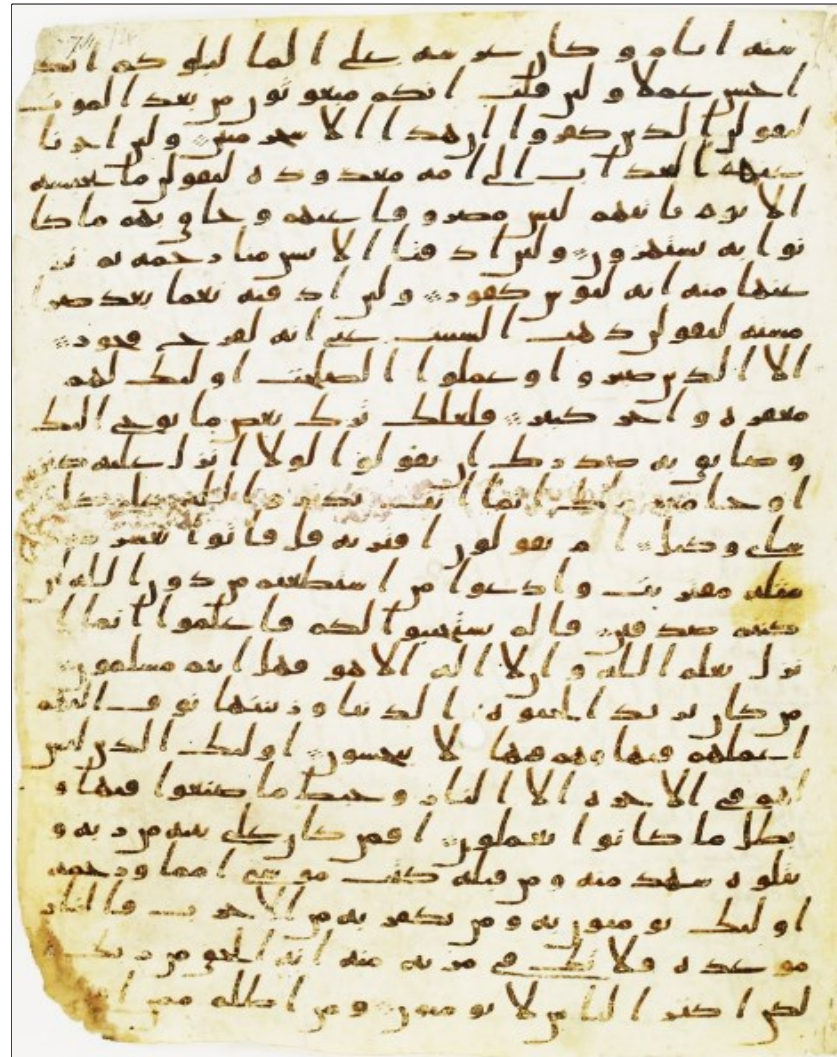 سته ايام و كان عرشه على الما ليبلوكم ايكم
احسن عملا ولين قلت انكم مبعوثون من بعد الموت
ليقولن الذين كفروا ان هذا الا سحر مبين ولين اخرنا
عنهم العذاب الى امه معدوده ليقولن ما يحبسه
الا يوم ياتيهم ليس مصروفا عنهم وحاق بهم ما كا
نوا به يستهزون ولين اذقنا الانسن منا رحمه ثم نز
عنها منه انه ليوس كفور ولين اذقنه نعما بعد ضرا
مسته ليقولن ذهب السيت عني انه لفرح فخور
الا الذين صبروا وعملوا الصلحت اوليك لهم
مغفره واجر كبير فلعلك ترك بعض ما يوحى اليك
وضايق به صدرك ان يقولوا لولا انزل عليه كنز
او جا معه ملك انما انت نذير والله على كل
شاى وكيل ام يقولون افتريه قل فاتوا بعشر
مثله مفتريت وادعوا من استطعتم من دون الله ان
كنتم صدقين فالم يستجيبوا لكم فاعلموا انما ا
نزل بعلم الله وان لا اله الا هو فهل انتم مسلمون
من كان يريد الحيوه الدنيا وزينتها نوف اليهم
اعملهم فيها وهم فيها لا يبخسون اوليك الذين ليس
لهم في الاخره الا النار وحبط ما صنعوا فيها و
بطل ما كانوا يعملون افمن كان على بينه من ربه و
يتلوه شهد منه ومن قبله كتب موسى امما ورحمه
اوليك يومنون به ومن يكفر به من الاحزب فالنار
موعده فلا تك في مريه منه انه الحق من ربك و
لكن اكثر الناس لا يومنون ومن اظلم ممن ا